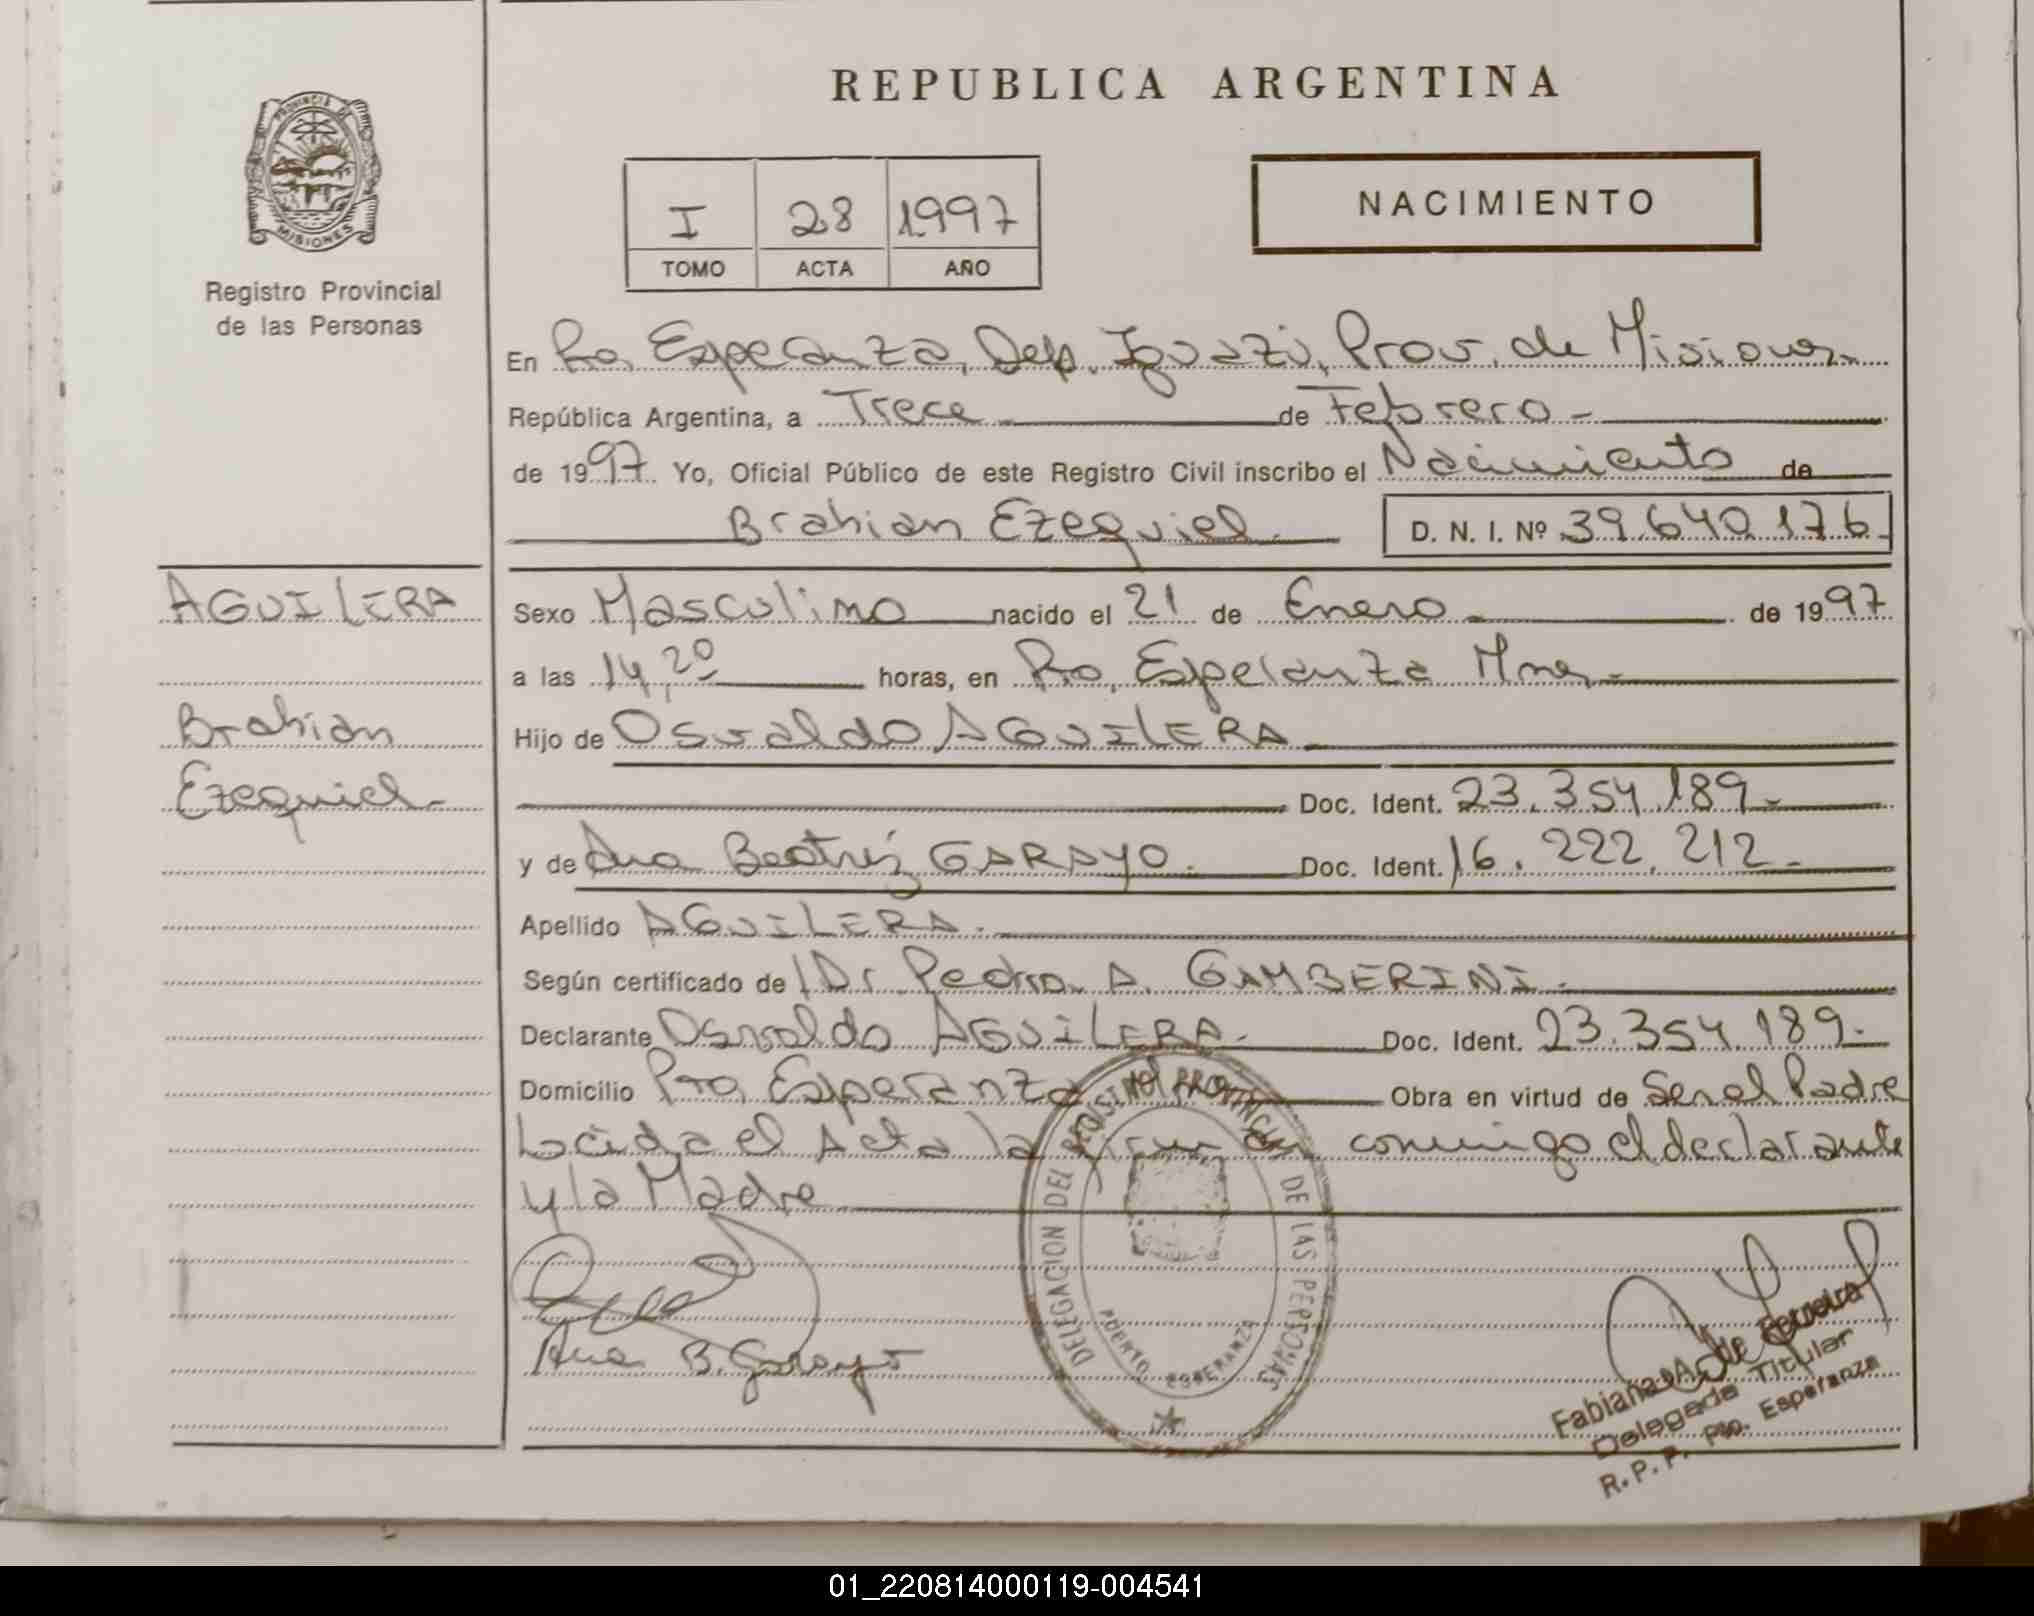 REPUBLICA ARGENTINA
PROVINCIA DE
MISIONES
Registro Provincial
de las Personas
I 28 1997
TOMO ACTA AÑO
NACIMIENTO
En Pto, Esperanza, Dep. Iguazú, Prov. de Misiones
República Argentina, a Trece de Febrero -
de 1997. Yo, Oficial Público de este Registro Civil inscribo el Nacimiento de
Brahian Ezequiel. D. N. I. Nº 39.640.176.
AGUILERA
Brahian
Ezequiel-
Sexo Masculino nacido el 21 de Enero de 1997
a las 14,20 horas, en Pto, Esperanza Mnes-
Hijo de Osvaldo AGUILERA
Doc. Ident. 23.354.189.-
y de Ana Beatriz GARAYO. Doc. Ident. 16.222.212.-
Apellido AGUILERA.
Según certificado de Dr Pedro A. GAMBERINI.
Declarante Osvaldo AGUILERA- Doc. Ident. 23.354.189.-
Domicilio Pto, Esperanza Obra en virtud de Ser el Padre
Leída el Acta la firman conmigo el declarante
y la Madre
Ana B. Garayo
DELEGACION DEL REGISTRO PROVINCIAL DE LAS PERSONAS
PUERTO ESPERANZA
Fabiana A. de Ferreira
Delegada Titular
R.P.P. Pto. Esperanza
01_220814000119-004541